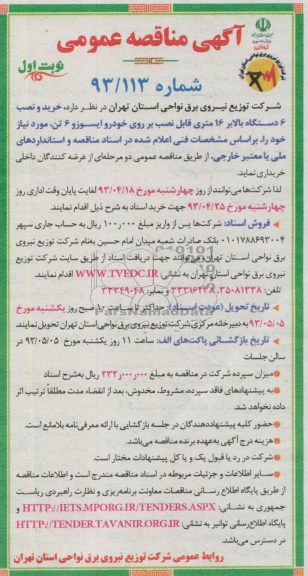 آگهی مناقصه عمومی
نوبت اول
شماره ۹۳/۱۱۳
شرکت توزیع نیروی برق نواحی استان تهران در نظر دارد، خرید و نصب
۶ دستگاه بالابر ۱۶ متری قابل نصب بر روی خودرو ایسوزو ۶ تن، مورد نیاز
خود را، براساس مشخصات فنی اعلام شده در اسناد مناقصه و استانداردهای
ملی یا معتبر خارجی، از طریق مناقصه عمومی دو مرحله‌ای از عرضه کنندگان داخلی
خریداری نماید.
لذا شرکت‌ها می‌توانند از روز چهارشنبه مورخ ۹۳/۰۴/۱۸ لغایت پایان وقت اداری روز
چهارشنبه مورخ ۹۳/۰۴/۲۵ جهت خرید اسناد به شرح ذیل اقدام نمایند.
فروش اسناد: شرکت‌ها پس از واریز مبلغ ۱۰۰٫۰۰۰ ریال به حساب جاری سپهر
۰۱۰۱۷۸۸۶۹۳۰۰۴ بانک صادرات شعبه میدان امام حسین بنام شرکت توزیع نیروی
برق نواحی استان تهران می‌توانند جهت دریافت اسناد از طریق سایت شرکت توزیع
نیروی برق نواحی استان تهران به نشانی WWW.TVEDC.IR اقدام نمایند.
تحویل (عودت اسناد): حداکثر تا ساعت ۱۰ صبح روز یکشنبه مورخ
۹۳/۰۵/۰۵ به دبیرخانه مرکزی شرکت توزیع نیروی برق نواحی استان تهران تحویل نمایند.
تاریخ بازگشائی پاکت‌های الف: ساعت ۱۱ روز یکشنبه مورخ ۹۳/۰۵/۰۵ در
سالن جلسات
میزان سپرده شرکت در مناقصه به مبلغ ۳۳۳٫۰۰۰٫۰۰۰ ریال به‌شرح اسناد
به پیشنهادهای فاقد سپرده، مشروط، مخدوش، بعد از انقضاء مدت مطلقاً ترتیب اثر
داده نخواهد شد.
حضور کلیه پیشنهاددهندگان در جلسه بازگشایی با ارائه معرفی‌نامه بلامانع است.
هزینه درج آگهی به‌عهده برنده مناقصه می‌باشد.
شرکت در رد یا قبول یک و یا کل پیشنهادات مختار است.
سایر اطلاعات و جزئیات مربوطه در اسناد مناقصه مندرج است و اطلاعات مناقصه
از طریق پایگاه اطلاع رسانی مناقصات معاونت برنامه‌ریزی و نظارت راهبردی ریاست
جمهوری به نشانی: HTTP://IETS.MPORG.IR/TENDERS.ASPX و
پایگاه اطلاع‌رسانی توانیر به نشانی: HTTP://TENDER.TAVANIR.ORG.IR
در دسترس می‌باشد.
روابط عمومی شرکت توزیع نیروی برق نواحی استان تهران